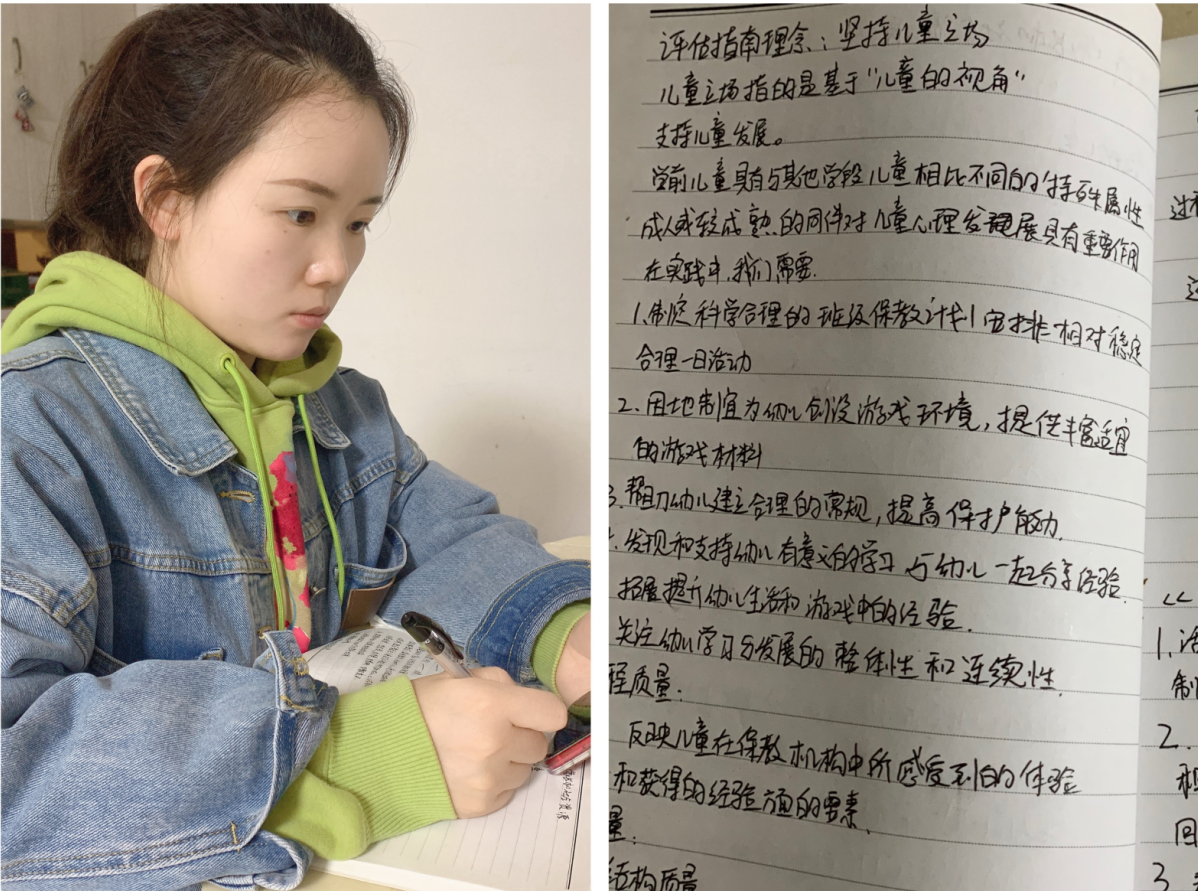 评估指南理念：坚持儿童立场
儿童立场指的是基于“儿童的视角”
支持儿童发展。
学前儿童具有与其他学段儿童相比不同的特殊属性
成人或较成熟的同伴对儿童心理发展具有重要作用
在实践中,我们需要.
1.制定科学合理的班级保教计划 安排相对稳定
合理一日活动
2.因地制宜为幼儿创设游戏环境，提供丰富适宜
的游戏材料
3.帮助幼儿建立合理的常规，提高保护能力.
发现和支持幼儿有意义的学习 与幼儿一起分享经验.
拓展提升幼儿生活和游戏中的经验.
关注幼儿学习与发展的整体性和连续性.
程质量.
反映儿童在保教机构中所感受到的体验
和获得的经验方面的要素.
量:
结构质量
1.
制
2.
回
3.